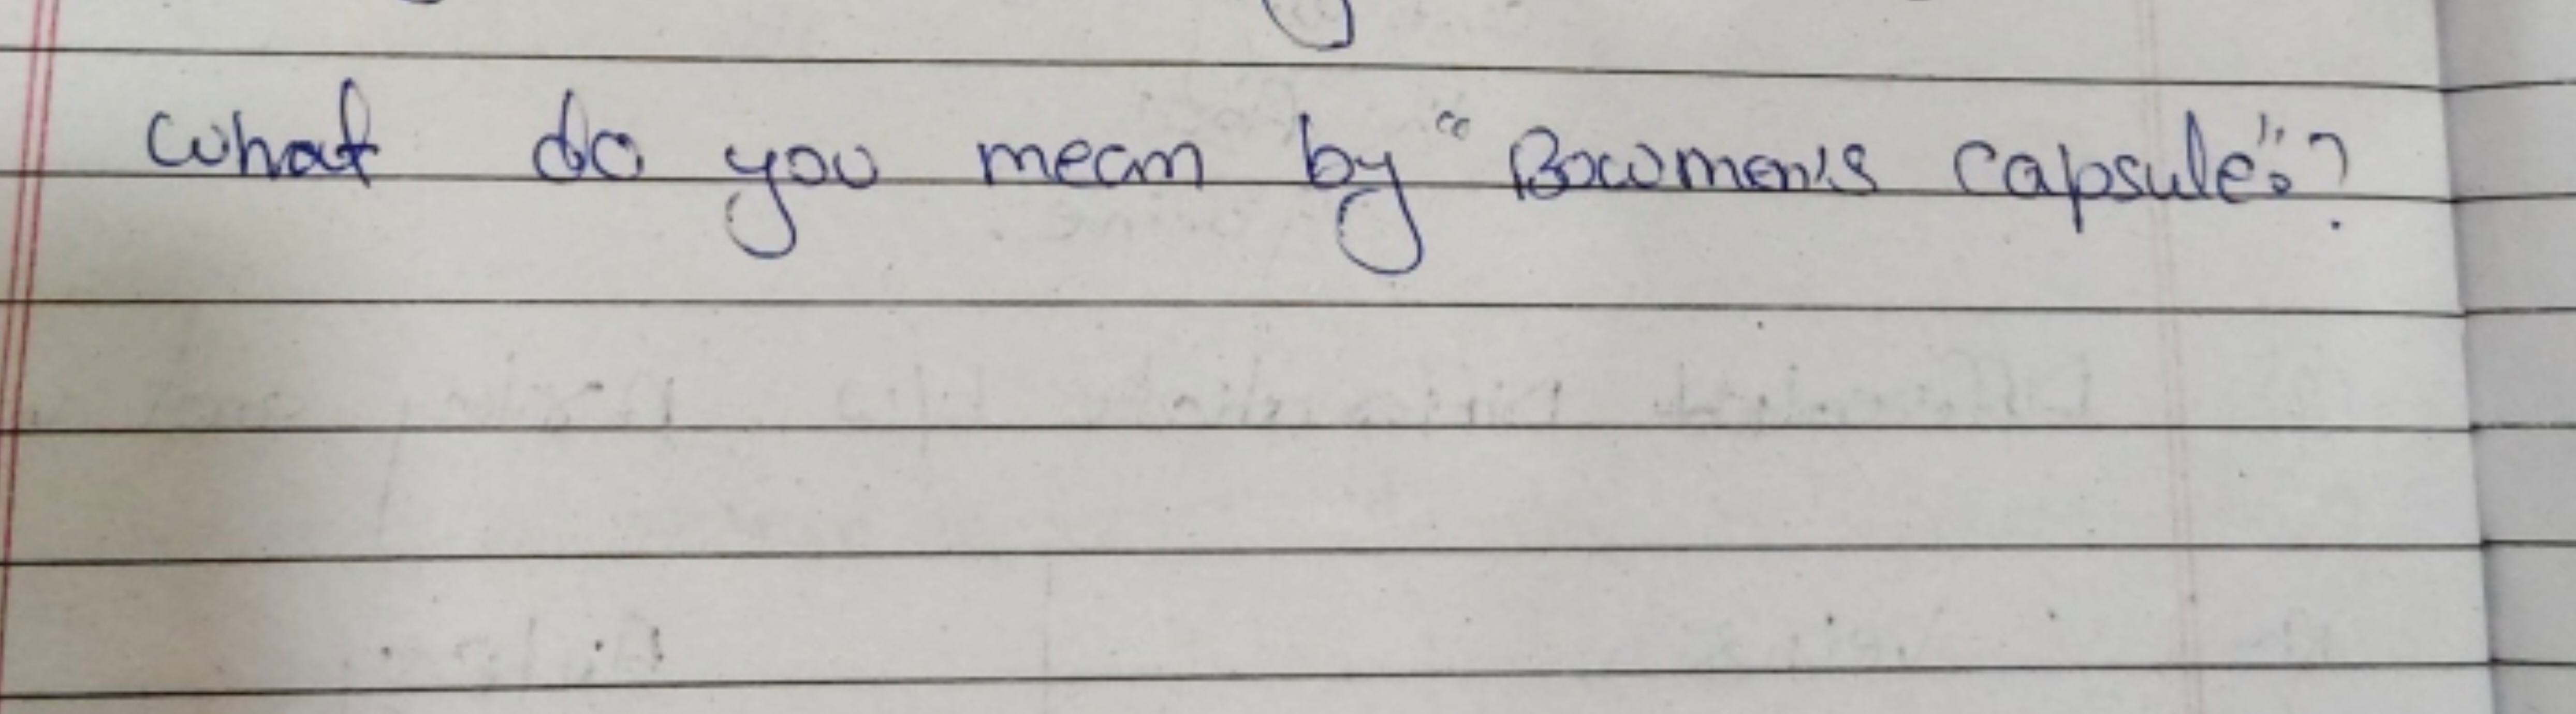 What do you mean by "Bowmen's capsule"?